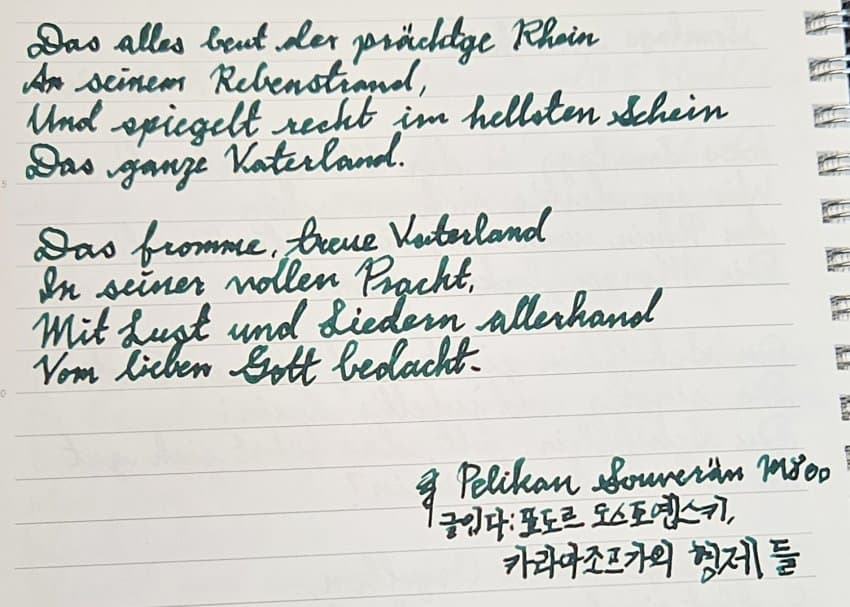 Das alles beut der prächtge Rhein
An seinem Rebenstrand,
Und spiegelt recht im hellsten Schein
Das ganze Vaterland.
Das fromme, treue Vaterland
In seiner vollen Pracht,
Mit Lust und Liedern allerhand
Vom lieben Gott bedacht.
Pelikan Souverän M800
글입다: 표도르 도스토옙스키,
카라마조프가의 형제들